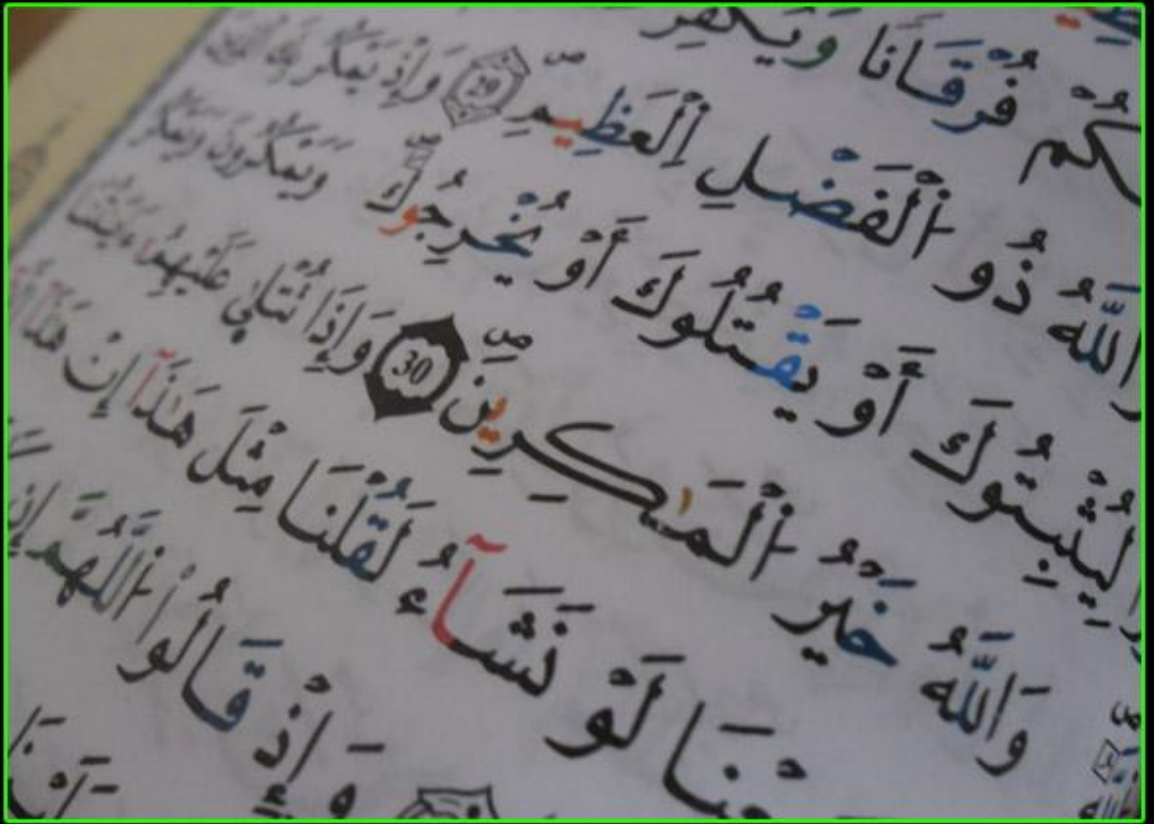 كُمْ فُرْقَانًا وَيُكَفِّرْ
ٱللَّهُ ذُو ٱلْفَضْلِ ٱلْعَظِيمِ 29 وَإِذْ يَمْكُرُ بِكَ
لِيُثْبِتُوكَ أَوْ يَقْتُلُوكَ أَوْ يُخْرِجُوكَ وَيَمْكُرُونَ وَيَمْكُرُ
وَٱللَّهُ خَيْرُ ٱلْمَٰكِرِينَ 30 وَإِذَا تُتْلَىٰ عَلَيْهِمْ
لَوْ نَشَآءُ لَقُلْنَا مِثْلَ هَٰذَآ إِنْ هَٰذَآ
وَإِذْ قَالُوا۟ ٱللَّهُمَّ إِن